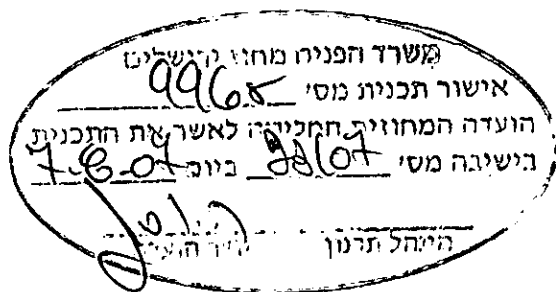 משרד הפנים מחוז ירושלים
אישור תכנית מס'
הועדה המחוזית החליטה לאשר את התכנית
בישיבה מס' ביום 7-6-07
מינהל תכנון יו"ר הועדה